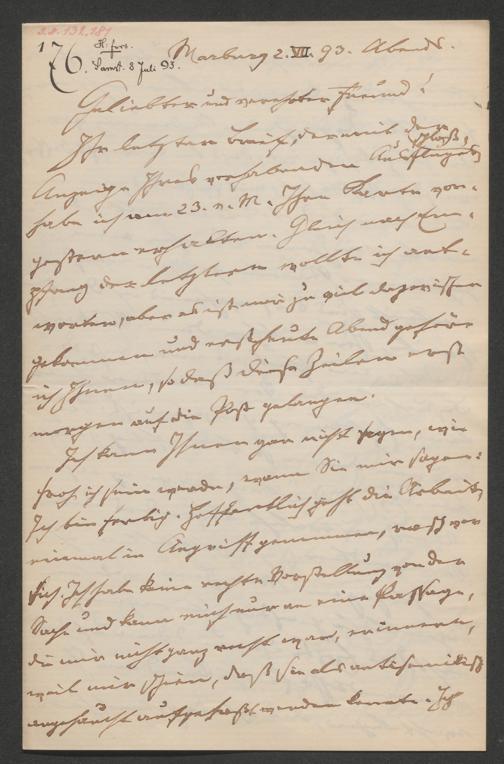 28.132.181
176. H.fors.
Samst. 8 Juli 93.
Marburg 2. VII. 93. Abends.
Geliebter und verehrter Freund!
Ihr letzter Brief, der mit der
Anzeige Ihres vorhabenden Ausfluges,
habe ich am 23. v. M., Ihre Karte vor-
gestern erhalten. Gleich nach Em-
pfang der letzteren wollte ich ant-
worten, aber es ist mir zu viel dazwischen
gekommen und erst heute Abend gehöre
ich Ihnen, so daß diese Zeilen erst
morgen auf die Post gelangen.
Ich kann Ihnen gar nicht sagen, wie
froh ich sein werde, wenn Sie mir sagen:
Ich bin fertig. Hoffentlich geht die Arbeit,
einmal in Angriff genommen, rasch vor
sich. Ich habe keine rechte Vorstellung von der
Sache und kann mich nur an eine Passage,
die mir nicht ganz recht war, erinnern,
weil mir schien, daß sie als antisemitisch
angehaucht aufgefaßt werden könnte. Ich